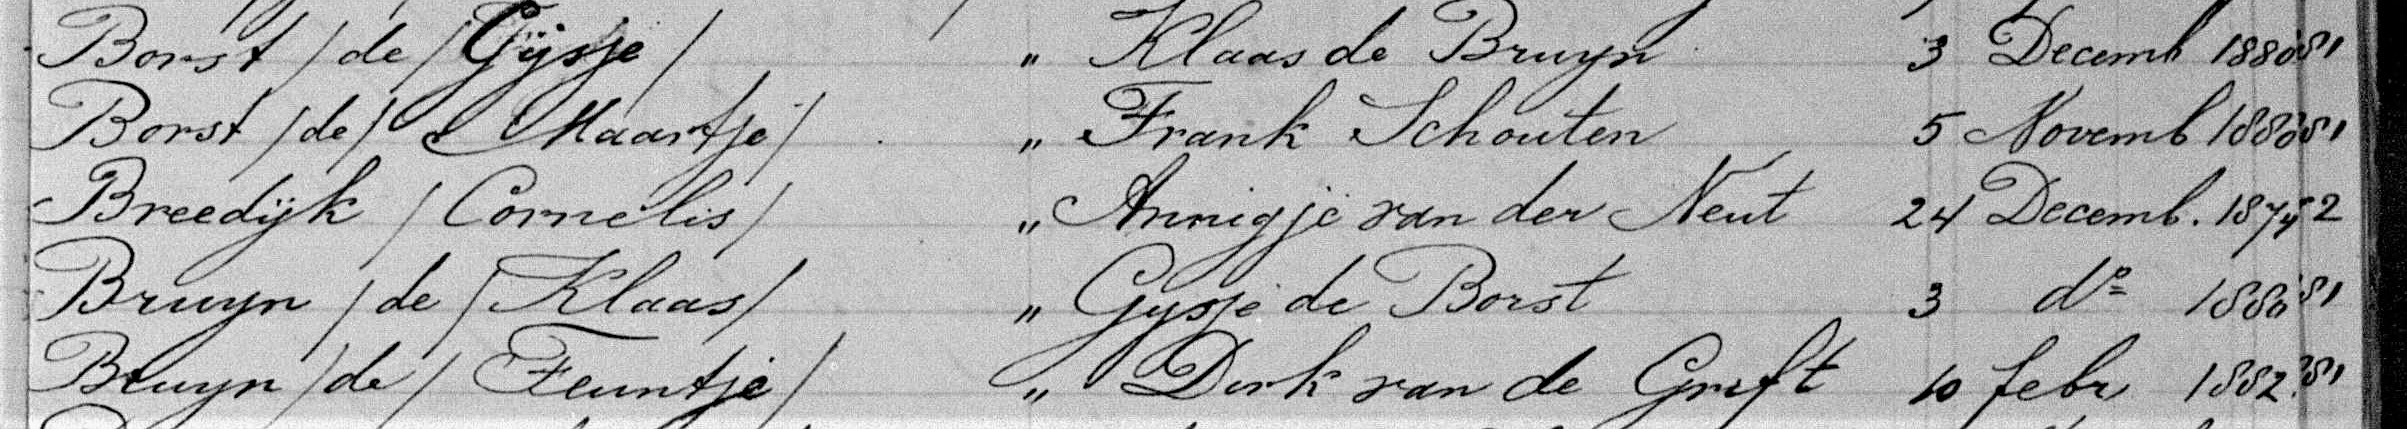 Borst /de/ Gijsje/ " Klaas de Bruyn 3 Decemb 1880 81
Borst /de/ Maartje/ " Frank Schouten 5 Novemb 1880 81
Breedijk /Cornelis/ " Annigje van der Neut 24 Decemb. 1874 52
Bruyn /de/ Klaas/ " Gysje de Borst 3 do 1880 81
Bruyn /de/ Teuntje/ " Dirk van de Grift 10 febr 1882 81